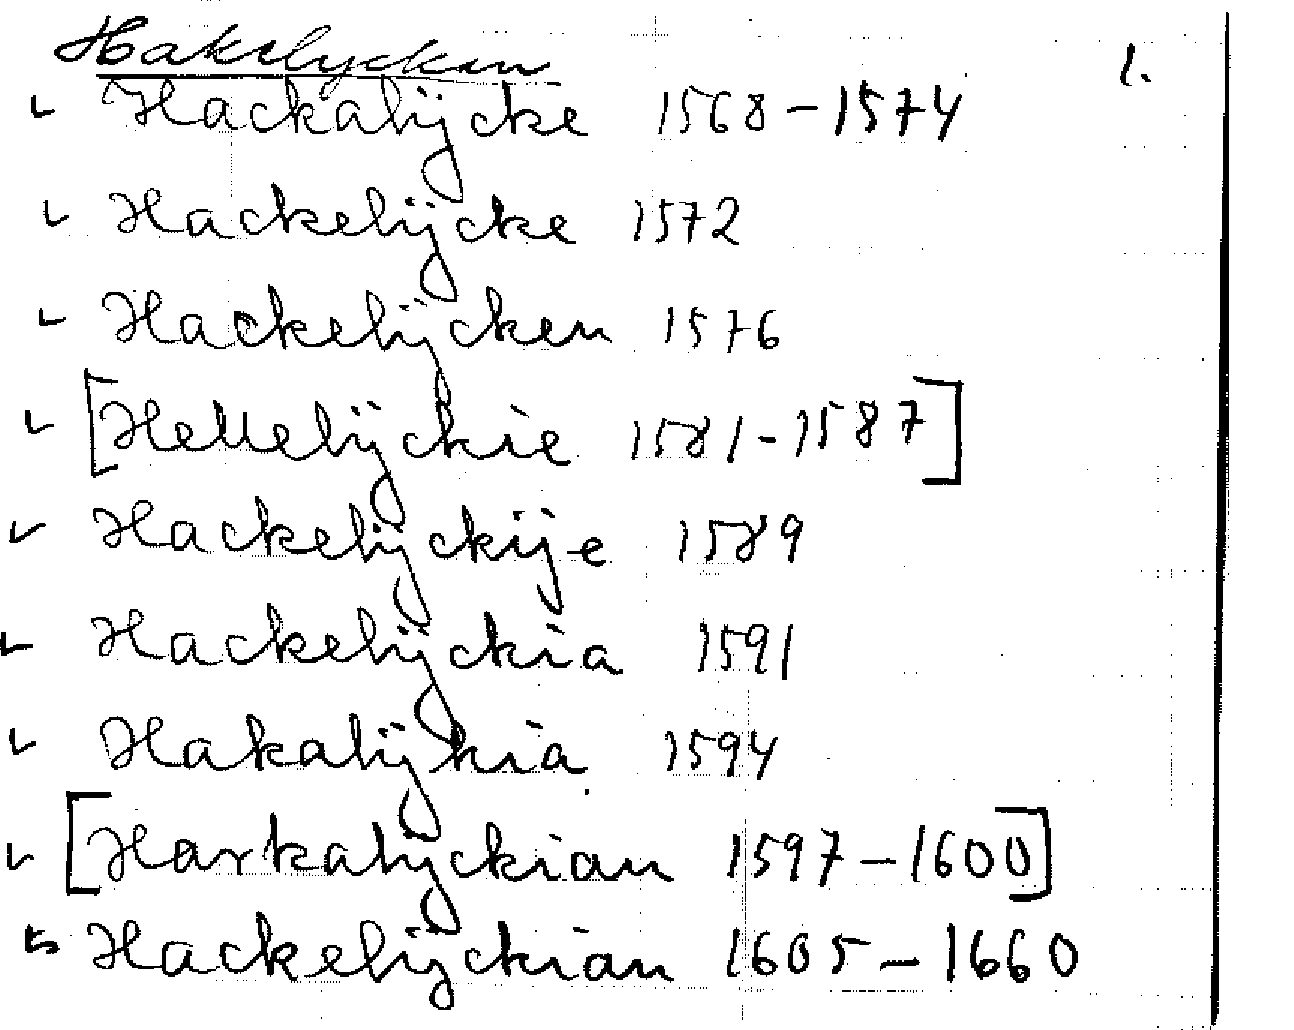 Hakelyckan 1.
Hackalÿcke 1568-1574
Hackelÿcke 1572
Hackelÿcken 1576
[Hellelÿckie 1581-1587]
Hackelÿckije 1589
Hackelÿckia 1591
Hakalÿkia 1594
[Harkalÿckian 1597-1600]
Hackelÿckian 1605-1660